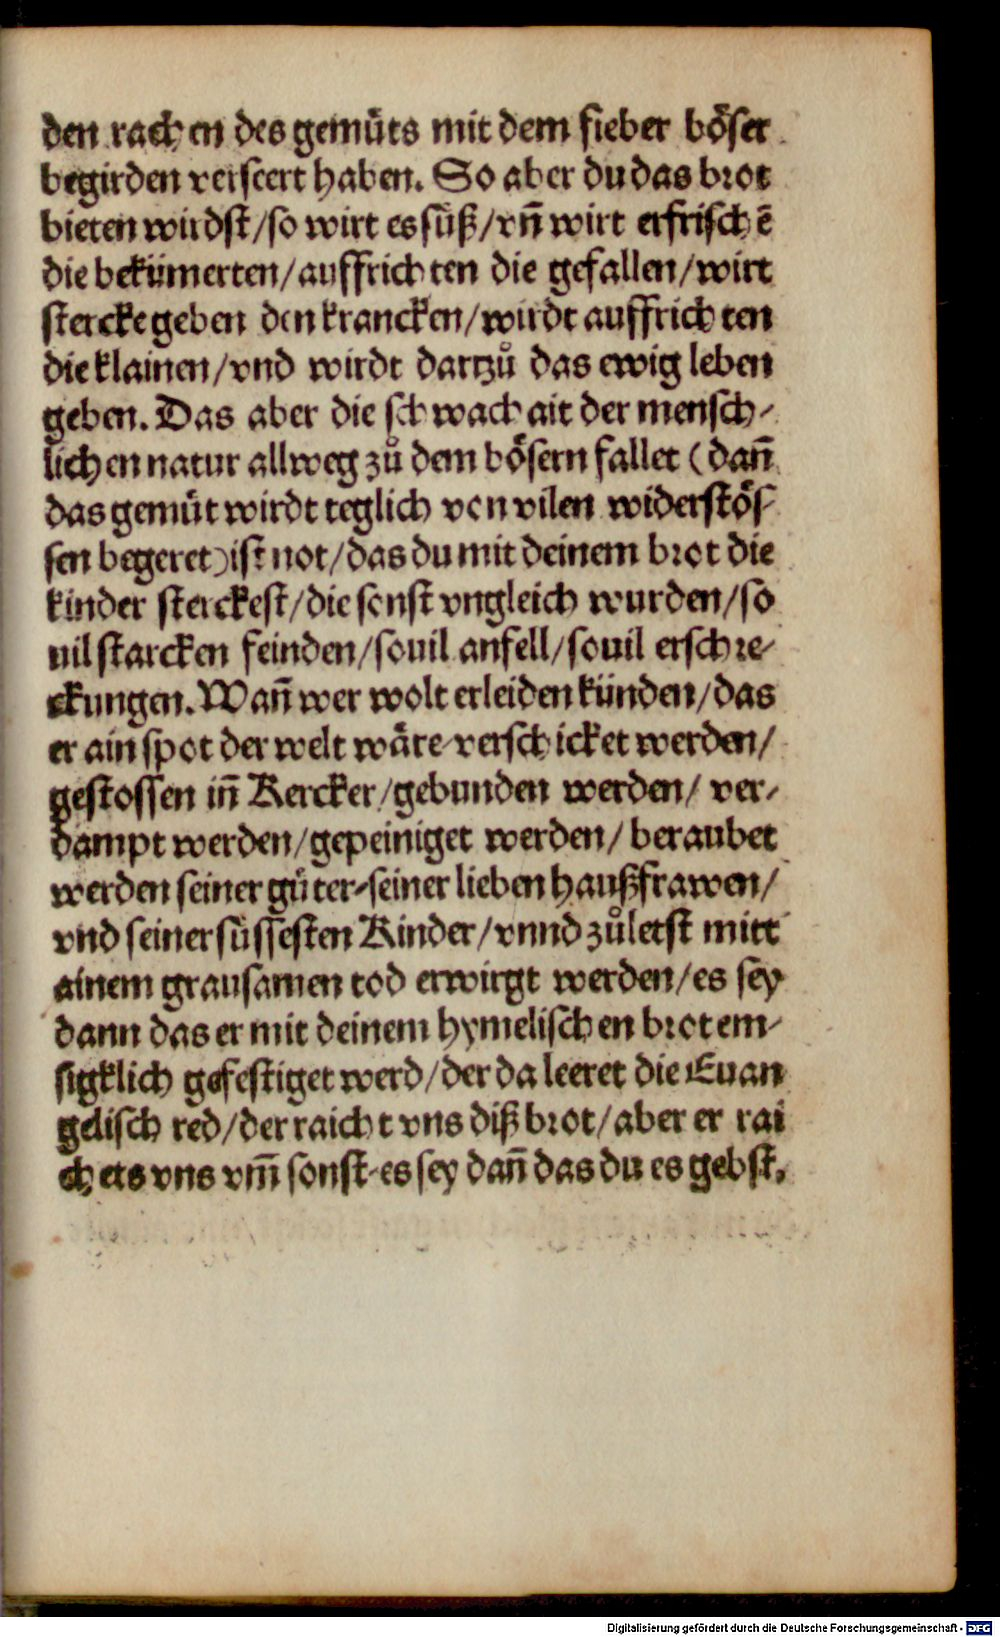 den rachen des gemüts mit dem fieber böser
begirden verseert haben. So aber du das brot
bieten wirdst/so wirt es süß/vñ wirt erfrischē
die bekümerten/auffrichten die gefallen/wirt
stercke geben den krancken/wirdt auffrichten
die klainen/vnd wirdt dartzů das ewig leben
geben. Das aber die schwachait der mensch-
lichen natur allweg zů dem bösern fallet (dañ
das gemüt wirdt teglich von vilen widerstös-
sen begeret) ist not/das du mit deinem brot die
kinder sterckest/die sonst vngleich wurden/so
uil starcken feinden/souil anfell/souil erschre-
ckungen. Wañ wer wolt erleiden künden/das
er ain spot der welt wäre-verschicket werden/
gestossen iñ Kercker/gebunden werden/ ver-
dampt werden/gepeiniget werden/ beraubet
werden seiner güter-seiner lieben haußfrawen/
vnd seiner süssesten Kinder/vnnd zůletst mitt
ainem grausamen tod erwirgt werden/es sey
dann das er mit deinem hymelischen brot em-
sigklich gefestiget werd/der da leeret die Euan
gelisch red/der raicht vns diß brot/aber er rai
chets vns vm̄ sonst-es sey dañ das du es gebst,
Digitalisierung gefördert durch die Deutsche Forschungsgemeinschaft - DFG